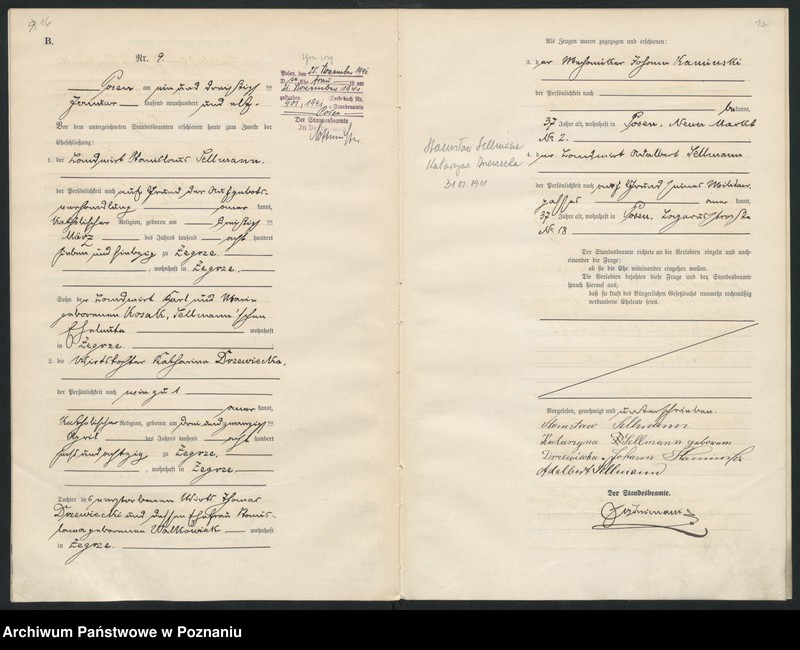 9.
B.
Nr. 9
Posen am ein und dreißigsten
Januar tausend neunhundert und elf.
Vor dem unterzeichneten Standesbeamten erschienen heute zum Zwecke der
Eheschließung:
1. der Landwirt Stanislaus Sellmann.
der Persönlichkeit nach auf Grund der Aufgebots-
verhandlung anerkannt,
katholischer Religion, geboren am dreißigsten
März des Jahres tausend acht hundert
sieben und siebzig zu Zegrze.
, wohnhaft in Zegrze.
Sohn der Landwirt Karl und Marie
geborenen Kosak, Sellmann'schen
Eheleute wohnhaft
in Zegrze.
2. die Wirtstochter Katharina Drzewiecka,
der Persönlichkeit nach wie zu 1
kannt,
katholischer Religion, geboren am drei und zwanzigsten
April des Jahres tausend acht hundert
sechs und achtzig zu Zegrze.
, wohnhaft in Zegrze.
Tochter des verstorbenen Wirts Thomas
Drzewiecki und dessen Ehefrau Stanis-
lawa geborenen Walkowiak wohnhaft
in Zegrze.
Posen, den 25. November 1941
21. November 1941
Der Standesbeamte
In Vertretung
Als Zeugen waren zugezogen und erschienen:
3. der Mechaniker Johann Kaminski
der Persönlichkeit nach
bekannt,
37 Jahre alt, wohnhaft in Posen, Neuer Markt
No 2.
4. der Landwirt Adalbert Sellmann
der Persönlichkeit nach auf Grund seines Militär-
passes anerkannt,
37 Jahre alt, wohnhaft in Posen, Lazarusstraße
No 18
Stanisław Sellmann
Katarzyna Drzewiecka
31.01.1911
Der Standesbeamte richtete an die Verlobten einzeln und nach-
einander die Frage:
ob sie die Ehe miteinander eingehen wollen.
Die Verlobten bejahten diese Frage und der Standesbeamte
sprach hierauf aus,
daß sie kraft des Bürgerlichen Gesetzbuchs nunmehr rechtmäßig
verbundene Eheleute seien.
Vorgelesen, genehmigt und unterschrieben.
Stanisław Sellmann
Katarzyna Sellmann geborene
Drzewiecka Johann Kaminski
Adalbert Sellmann
Der Standesbeamte.
Archiwum Państwowe w Poznaniu